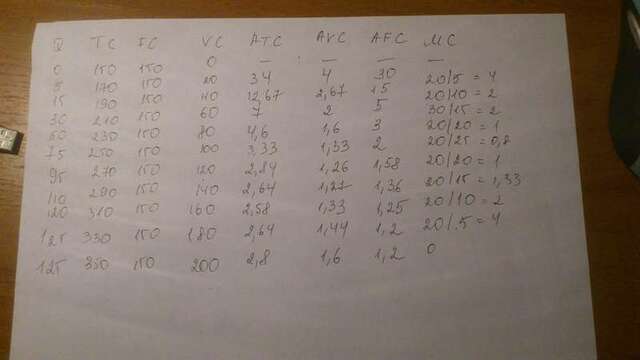 Q TC FC VC ATC AVC AFC MC
0 150 150 0 — — — —
5 170 150 20 34 4 30 20/5 = 4
15 190 150 40 12,67 2,67 15 20/10 = 2
30 210 150 60 7 2 5 30/15 = 2
50 230 150 80 4,6 1,6 3 20/20 = 1
75 250 150 100 3,33 1,33 2 20/25 = 0,8
95 270 150 120 2,84 1,26 1,58 20/20 = 1
110 290 150 140 2,64 1,27 1,36 20/15 = 1,33
120 310 150 160 2,58 1,33 1,25 20/10 = 2
125 330 150 180 2,64 1,44 1,2 20/.5 = 4
125 350 150 200 2,8 1,6 1,2 0